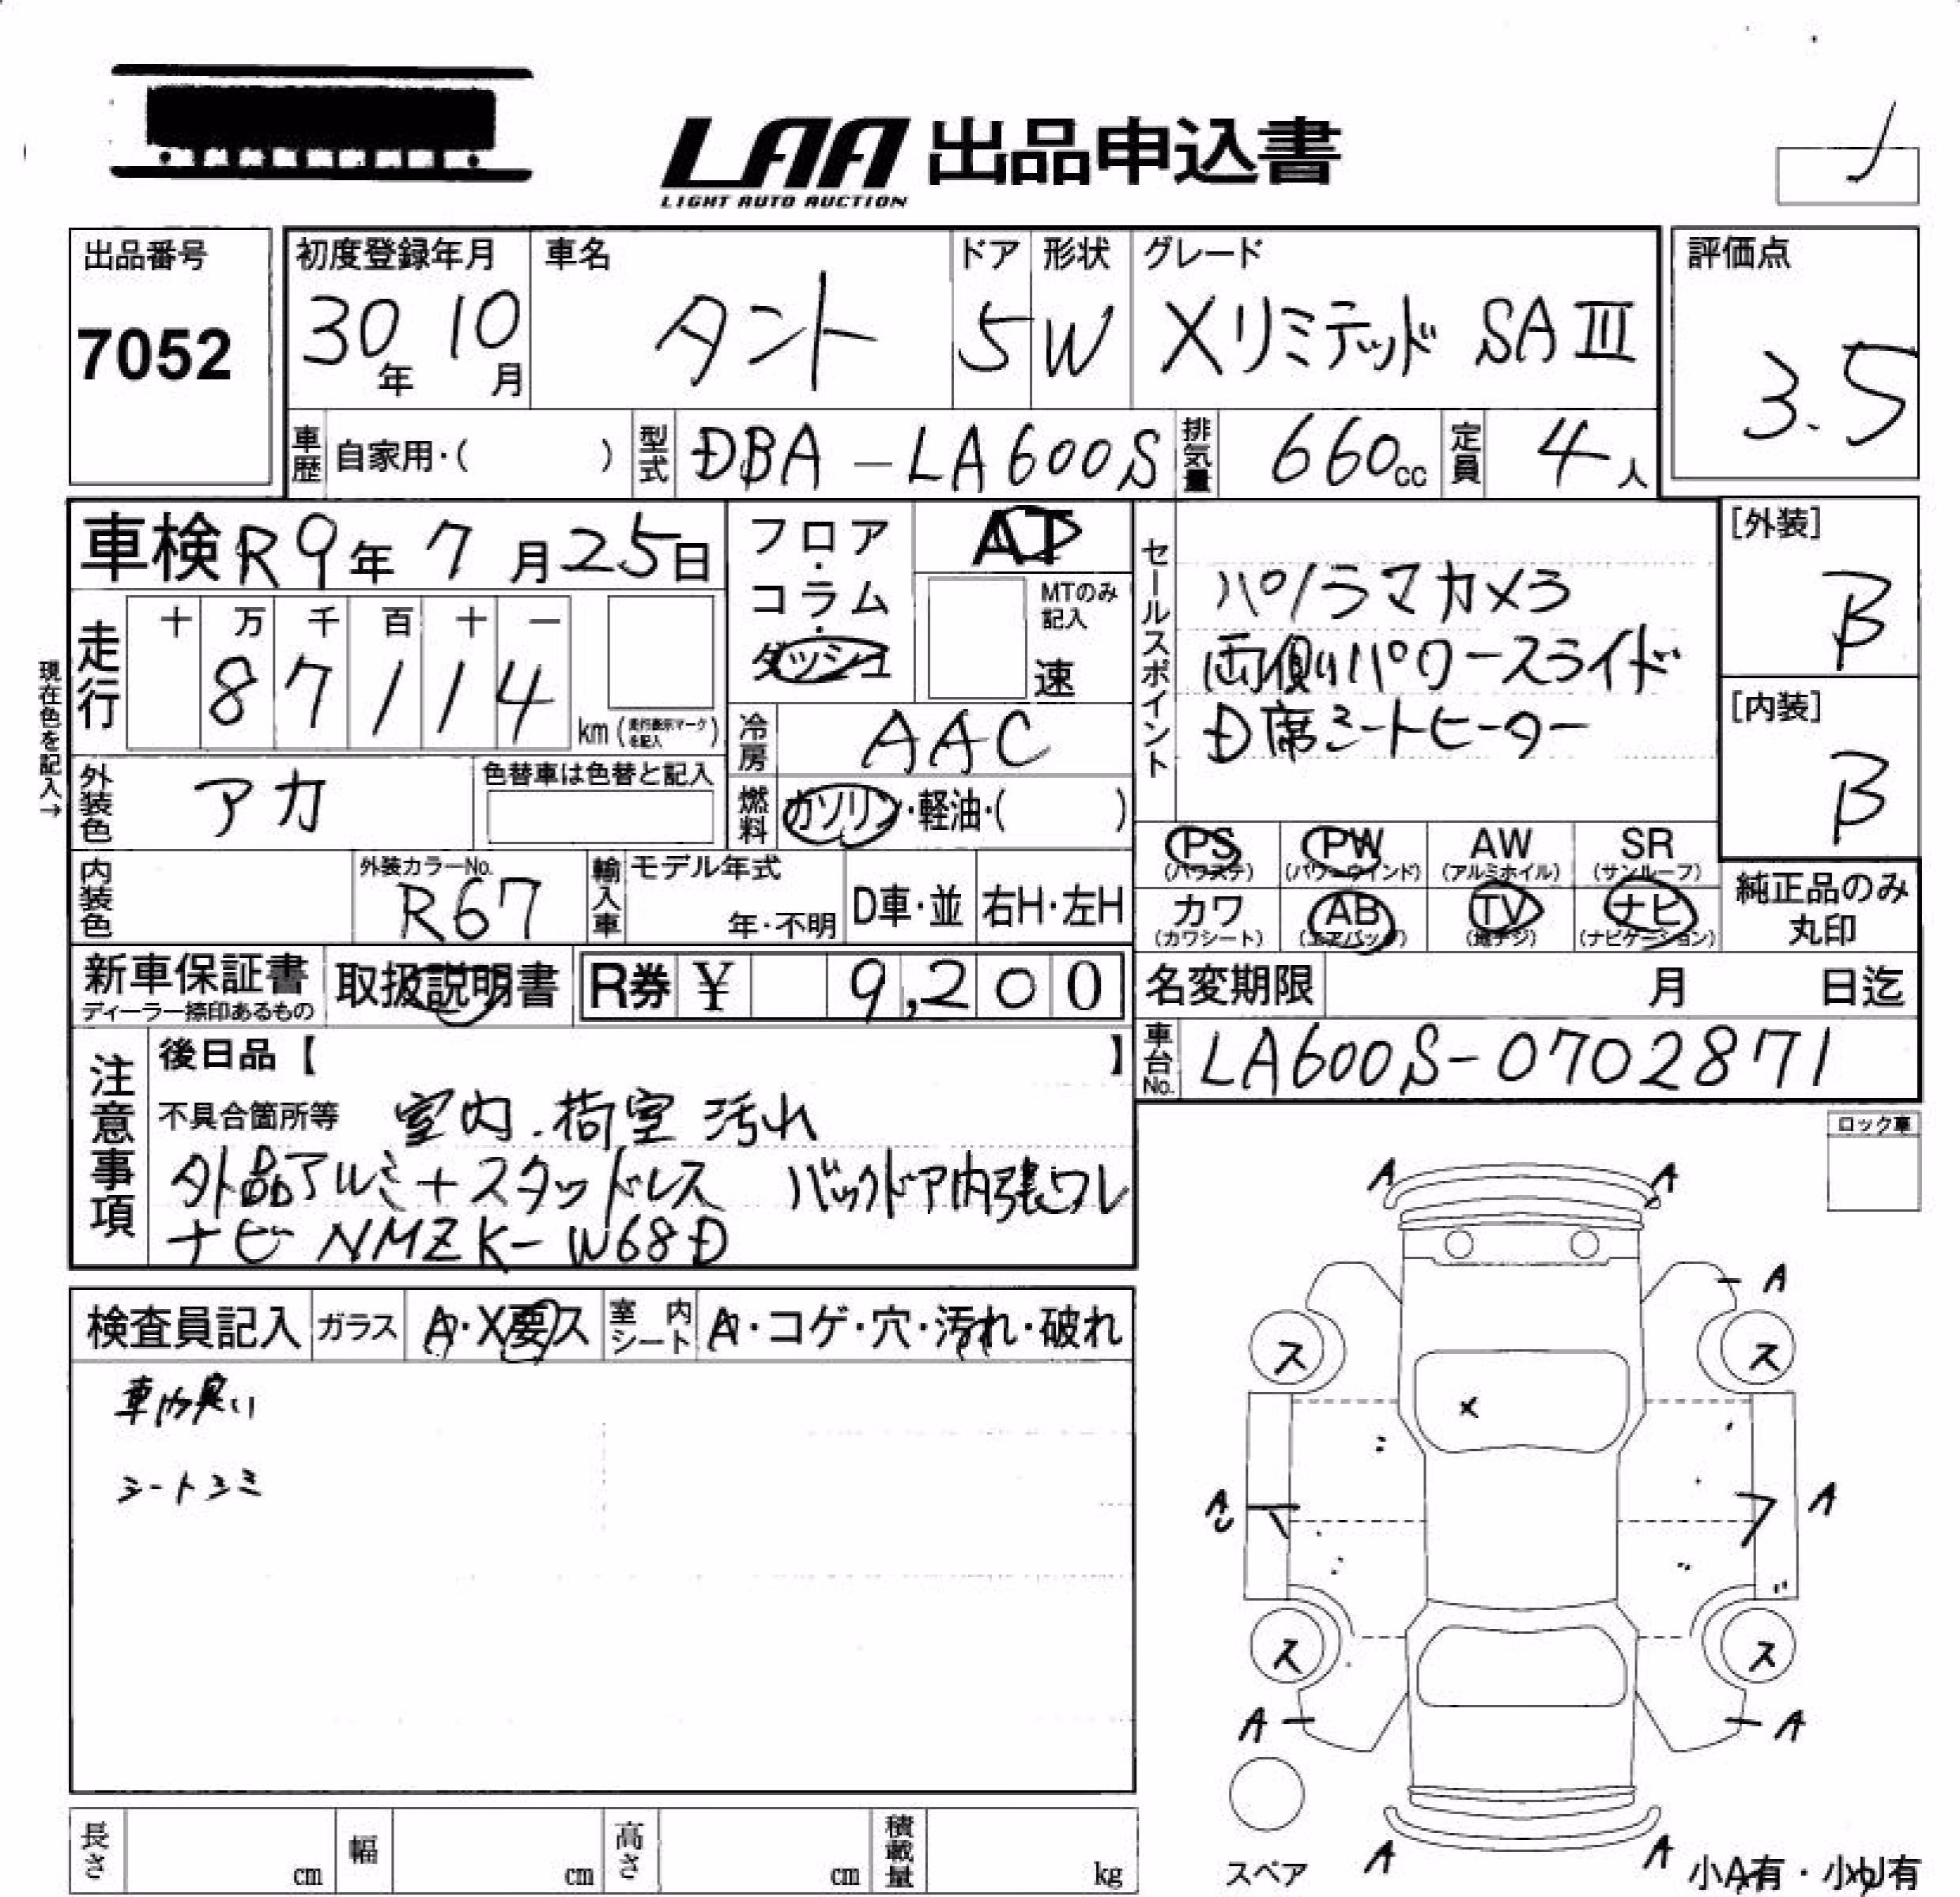 LAA 出品申込書
LIGHT AUTO AUCTION
出品番号
7052
初度登録年月
30年 10月
車名
タント
ドア
5
形状
W
グレード
Xリミテッド SAⅢ
評価点
3.5
車歴 自家用・( )
型式 DBA-LA600S
排気量 660cc
定員 4人
車検 R9年 7月25日
フロア・コラム・ダッシュ
AT
MTのみ記入
速
セールスポイント
パノラマカメラ
両側パワースライド
D席シートヒーター
[外装]
B
[内装]
B
現在色を記入→
走行 十 万 千 百 十 一
87114
km (走行表示マークを記入)
冷房 AAC
外装色 アカ
色替車は色替と記入
燃料 ガソリン・軽油・( )
PS (パワステ)
PW (パワーウインド)
AW (アルミホイル)
SR (サンルーフ)
カワ (カワシート)
AB (エアバッグ)
TV (地デジ)
ナビ (ナビゲーション)
純正品のみ丸印
内装色
外装カラーNo.
R67
輸入車 モデル年式
年・不明
D車・並
右H・左H
新車保証書
ディーラー捺印あるもの
取扱説明書
R券 ¥ 9,200
名変期限 月 日迄
車台No. LA600S-0702871
注意事項
後日品【 】
不具合箇所等 室内.荷室 汚れ
外品アルミ+スタッドレス バックドア内張ワレ
ナビ NMZK-W68D
ロック車
検査員記入 ガラス A・X要ス 室内シート A・コゲ・穴・汚れ・破れ
シートシミ
A A
A
ス ス
X
A
ス ス
A A
スペア
A A
小A有・小U有
長さ cm 幅 cm 高さ cm 積載量 kg